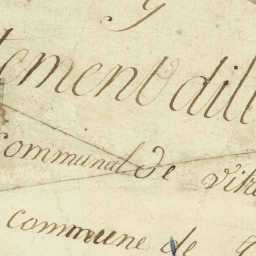 tement dill
communal de
commune de